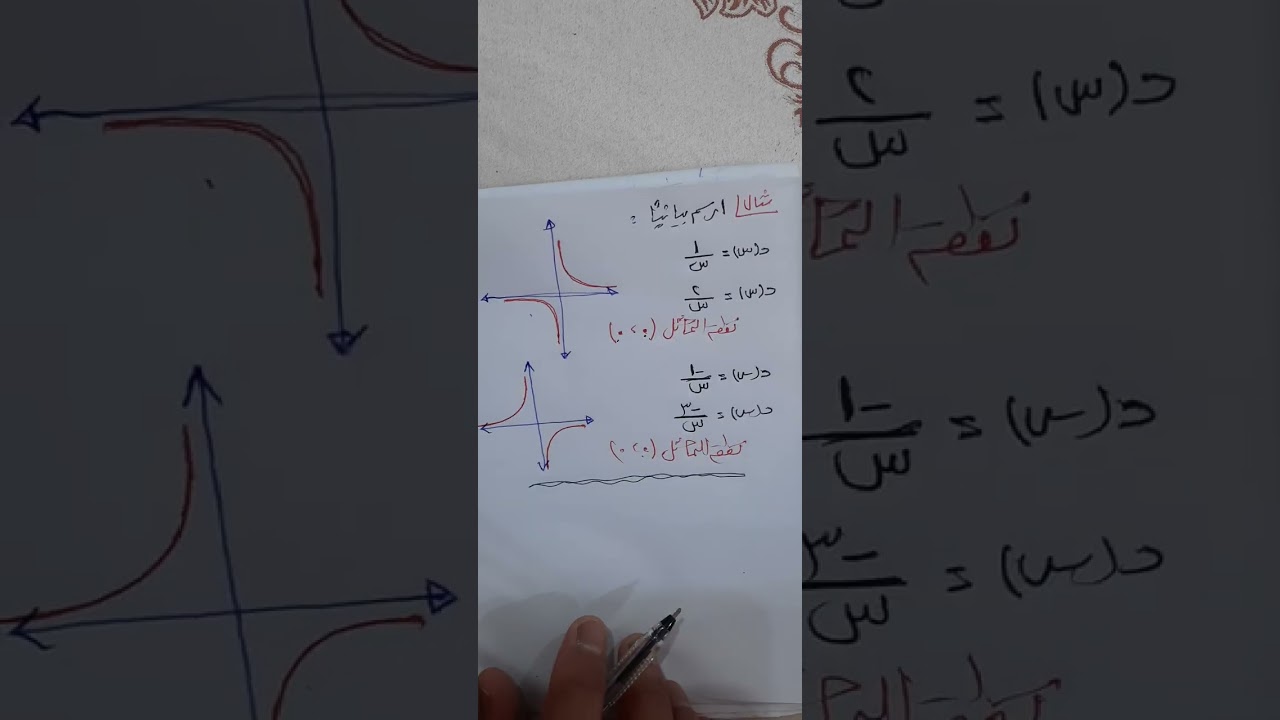 مثال ارسم بيانيًا :
د(س) = ١/س
د(س) = ٢/س
نقطة التماثل (٠،٠)
د(س) = -١/س
د(س) = -٣/س
نقطة التماثل (٠،٠)